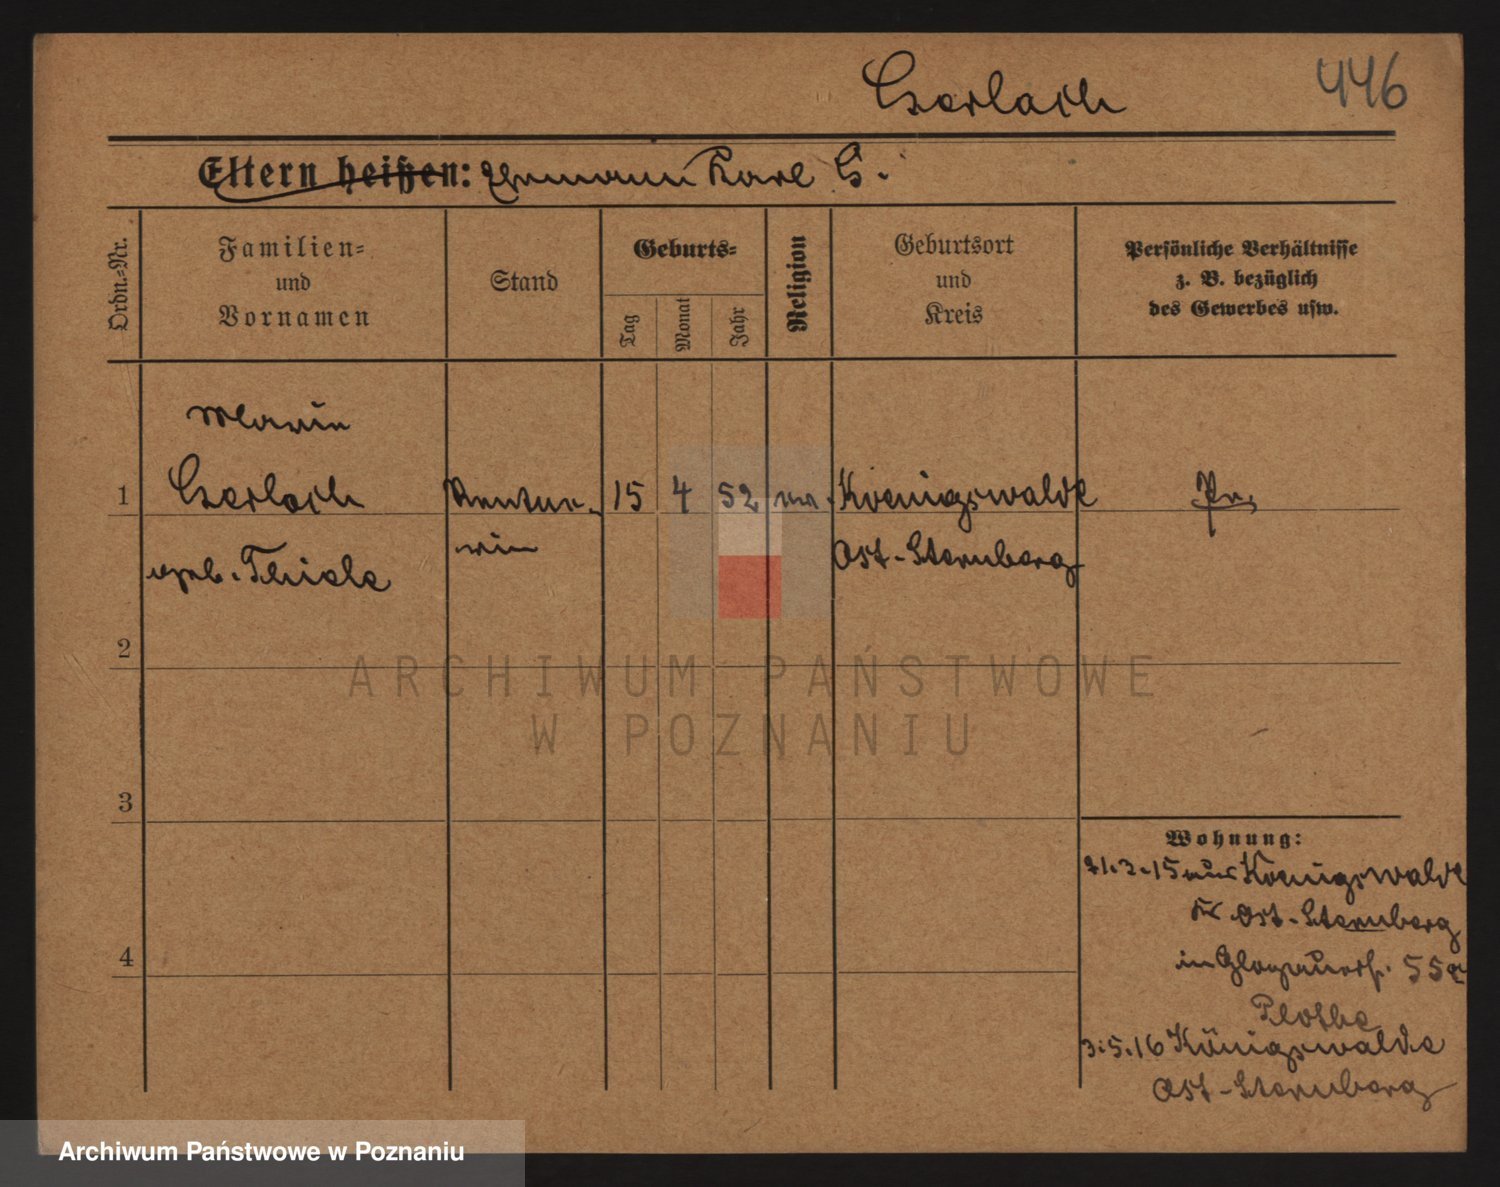 Gerlach 446
Eltern heißen: Hermann Karl G.
Ordn.=Nr.
Familien=
und
Vornamen
Stand
Geburts=
Tag
Monat
Jahr
Religion
Geburtsort
und
Kreis
Persönliche Verhältnisse
z. B. bezüglich
des Gewerbes usw.
Marie
1 Gerlach 15 4 52 ev. Koenigswalde Pr.
Ost-Sternberg
geb. Thiele
2
ARCHIWUM PAŃSTWOWE
W POZNANIU
3
Wohnung:
21.3.15 aus Koenigswalde
Kr Ost-Sternberg
in Glogauerstr. 55a
3.5.16 Königswalde
Ost-Sternberg
4
Archiwum Państwowe w Poznaniu